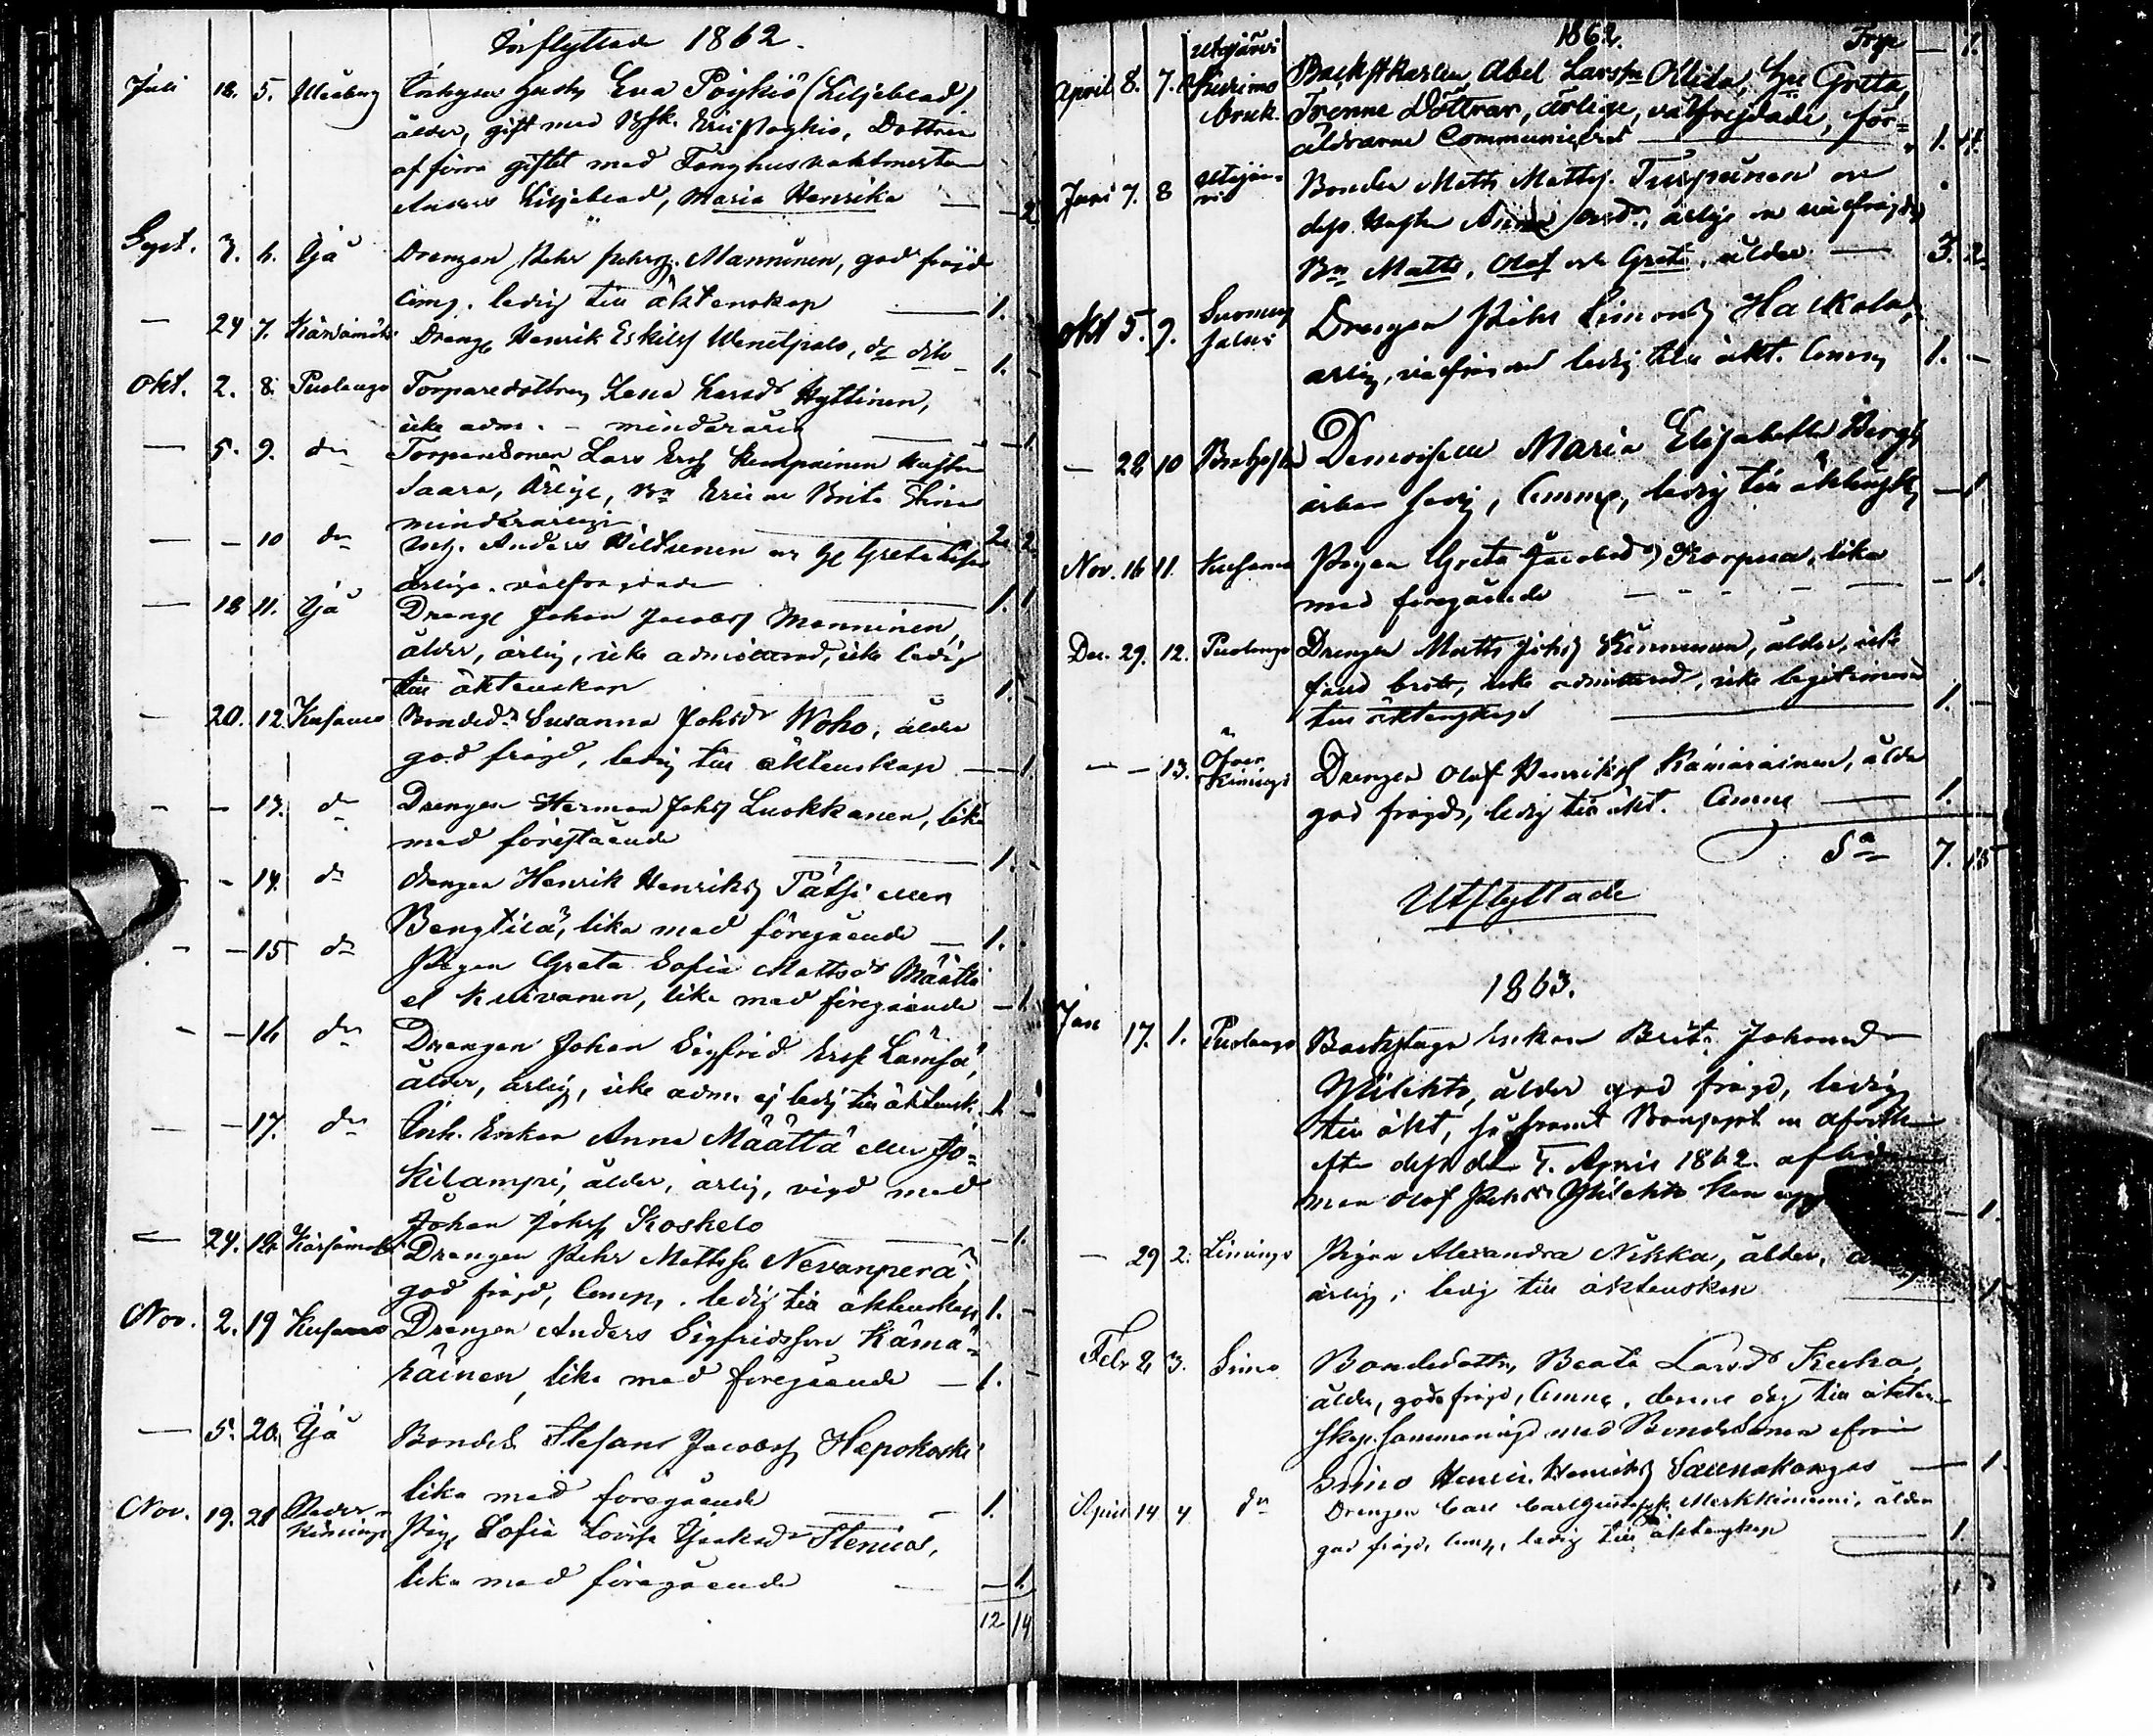 Inflyttade 1862.
Juli 18. 5. Uleåborg Inhyses Eva Pöykiö (Liljeblad)
ålder, gift med Eric Pöykiö, Dottren
af förra giftet med Fånghusvaktmästaren
Anders Liljeblad, Maria Henrika — 2
Sept. 3. 6. Ijå Drengen Pehr Pehrss. Manninen, god frejd
Comg. ledig till äktenskap — 1.
— 24 7. Kärsämäki Dreng Henrik Eskilss Wenetpalo, do dito 1. -
Okt. 2. 8. Pudasjo Torparedottren Lena Larsdr Hyttinen,
icke adm. - minderårig — 1
— 5. 9. do Torparesonen Lars Ersss Kemppainen hustru
Saara, ärlige, Bn Eric o Brita Stina
minderårige 2. 2
— - 10 do Anders Hiltunen o H Greta Lisa
ärlige. välfrejdade 1. 1
— 12 11. Ijå Dreng Johan Jacobss Manninen,
ålder, ärlig, icke admitterad, icke ledig
till äktenskap 1. -
— 20. 12 Kusamo Bonded. Susanna Johsdr Woho, ålder
god frejd, ledig till äktenskap — 1
- - 13. do Drengen Herman Johss Luokkanen, lika
med förestående 1. -
- 14. do drengen Henrik Henrikss Pätsi eller
Bengtilä, lika med föregående — 1.
- - 15 do Pigan Greta Sofia Mattsdr Määttä
el Kuivanen, lika med föregående — 1.
- - 16 do Drengen Johan Sigfrid Ersss Lämsä,
ålder, ärlig, icke adm. ej ledig till äktensk. 1 -
— - 17. do Inh. Enkan Anna Määttä eller Jo=
kilampi, ålder, ärlig, vigd med
Johan Johss Koskelo — 1.
— 24. 18 Kärsämäki Drengen Pehr Mattsson Nevanperä,
god frejd, Comg. ledig till äktenskap 1. -
Nov. 2. 19 Kusamo Drengen Anders Sigfridsson Kämä=
räinen, lika med föregående — 1. -
— 5. 20. Ijå Bondes. Stefan Jacobss Hepokoski
lika med föregående 1.
Nov. 19. 21 Neder-
Kiminge Pig. Sofia Lovisa Stenius,
lika med föregående — 1.
12 14
1862. Trsp — 1.
April 8. 7. Utajärvi
Kurimo
bruk. Backstkarlen Abel Larssn Ollila, Hu Greta,
Trenne Döttrar, ärlige, välfrejdade, för=
äldrarne Communicerat — 1. 4.
Juni 7. 8 Utajär=
vi Bonden Matts Mattss. Turpeinen o
dess Hustru ärlige o välfrejdade
Bn Matts, Olof och Greta, ålder — 3. 2
Okt 5. 9. Suomus
salmi Drengen Pehr Simonss Halkola,
ärlig, ledig till äkt. Comg 1. -
— 28 10 Brahestad Demoiselle Maria Elisabeth Bergh
ledig till — 1
Nov. 16 11. Kusamo Pigan Greta Jacobsdr Korpua, lika
med föregående - - - - — 1.
Dec. 29. 12. Pudasjo Drengen Matts Johss Kinnunen, ålder, icke
icke admitterad, icke legitimerad
till äktenskap 1. -
— - 13. Öfver
Kiminge Drengen Olof Henrikss Kämäräinen, ålder
god frejd, ledig till äkt. Comg — 1.
Sa 7. 15
Utflyttade
1863.
Jan 17. 1. Pudasjo Enkan Brita Johansdr
ålder god frejd, ledig
till äkt, så framt
efter dess den 4. April 1862. aflidne
man Olof Pehrss kan — 1.
— 29 2. Liminge Pigan Alexandra Nikka, ålder,
ärlig, ledig till äktenskap — 1
Febr 2 3. Simo Bondedottr. Beata Larsdr Keska,
ålder, god frejd, Comg, denne dag till äkten=
skap sammanvigd med Bondesonen ifrån
Simo Henric Henrikss Saunakangas — 1.
April 14 4 do Drengen Carl Carl Gustafss. Merkkiniemi, ålder
god frejd, Comg, ledig till äktenskap — 1.